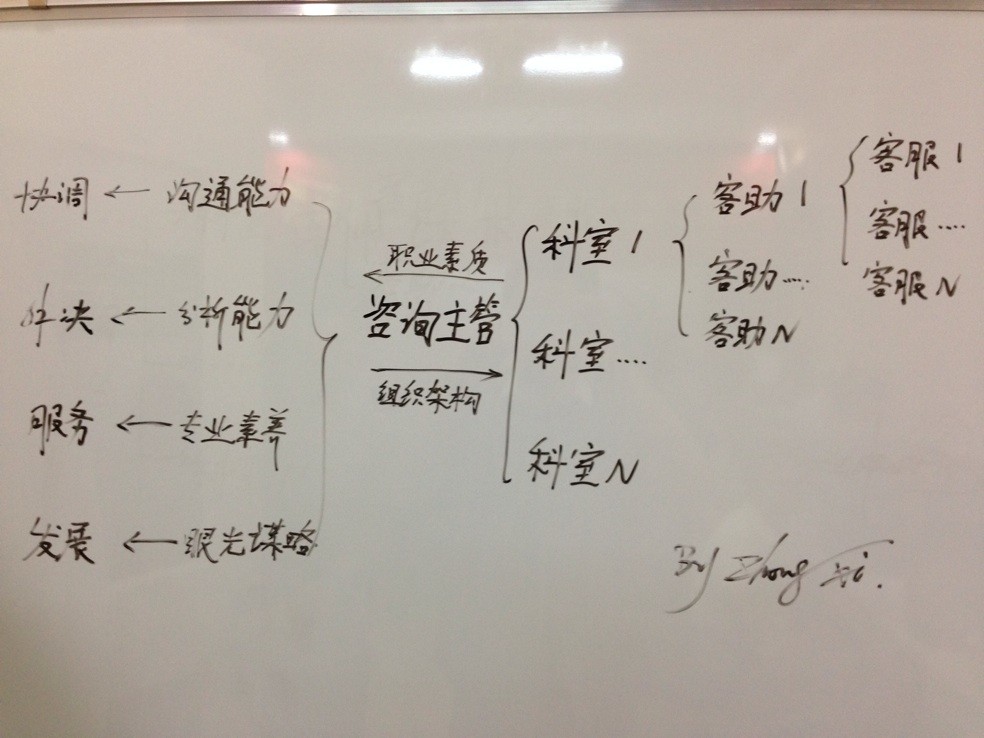 协调 ← 沟通能力
解决 ← 分析能力
服务 ← 专业素养
发展 ← 眼光谋略
职业素质
咨询主管
组织架构
科室1
科室....
科室N
客助1
客助....
客助N
客服1
客服....
客服N
By Zhong